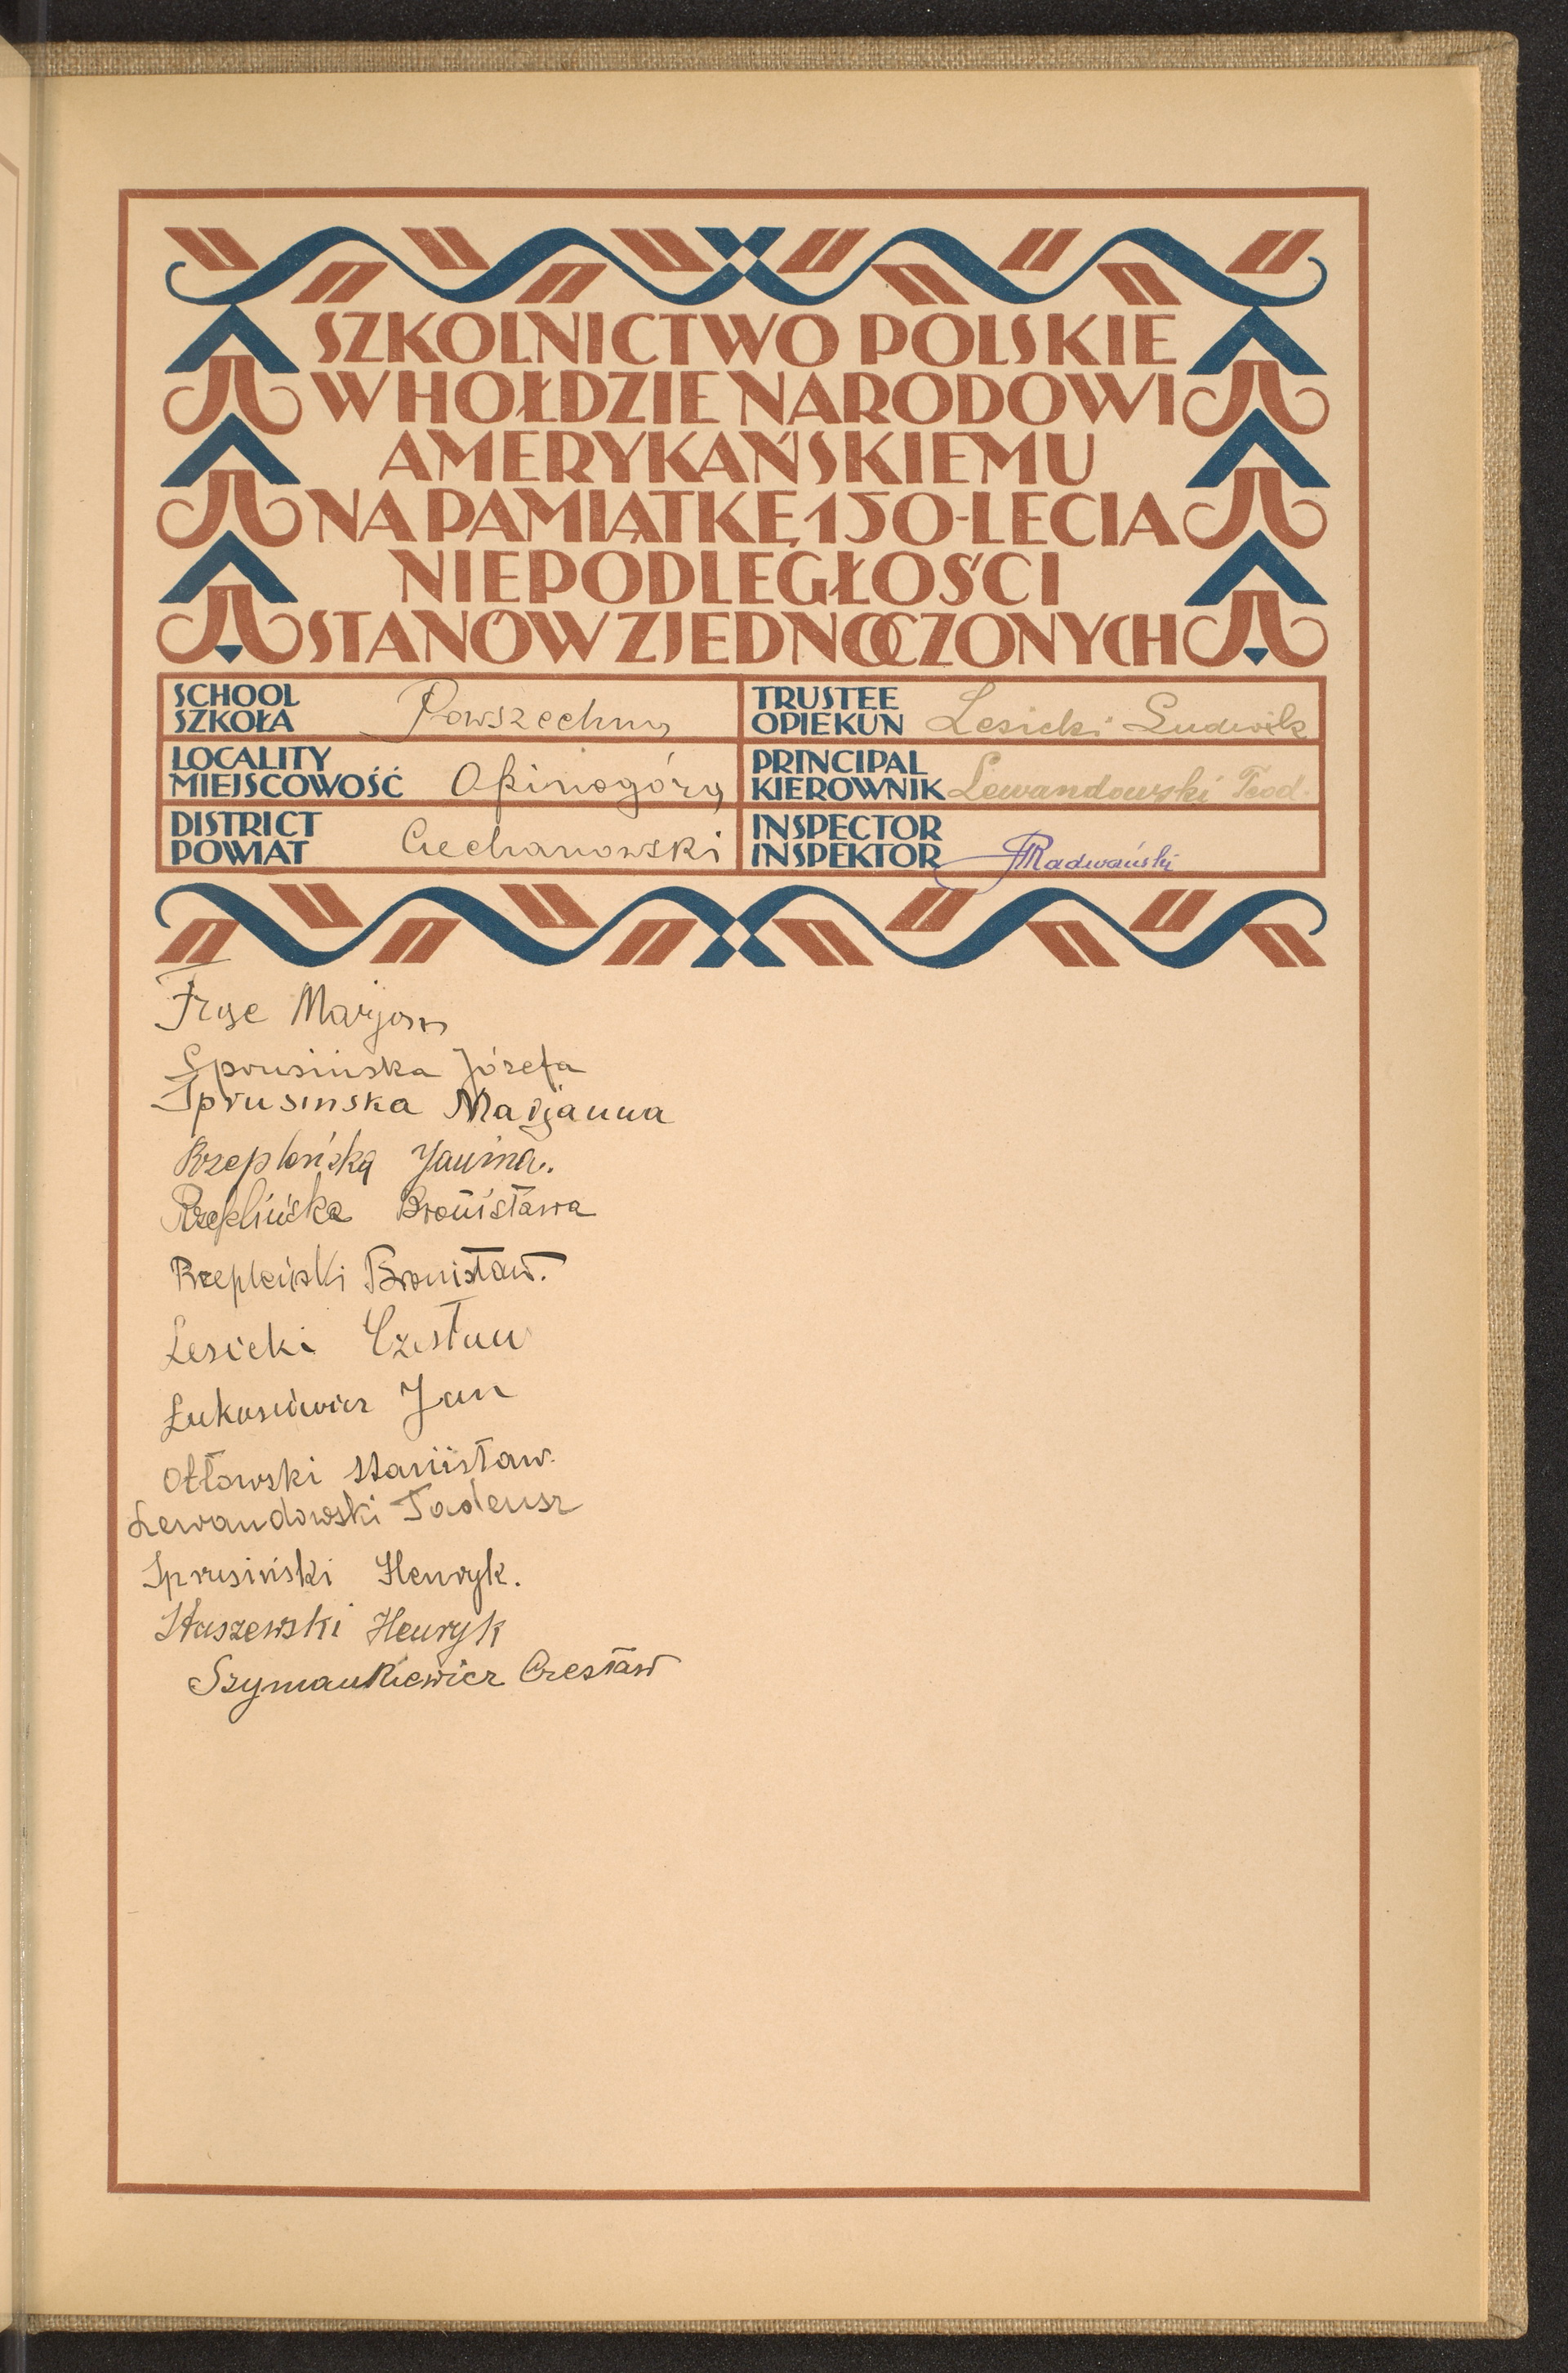 SZKOLNICTWO POLSKIE
W HOŁDZIE NARODOWI
AMERYKAŃSKIEMU
NA PAMIĄTKĘ 150-LECIA
NIEPODLEGŁOŚCI
STANÓW ZJEDNOCZONYCH
SCHOOL
SZKOŁA Powszechna
TRUSTEE
OPIEKUN Lesicki Ludwik
LOCALITY
MIEJSCOWOŚĆ Opinogóra
PRINCIPAL
KIEROWNIK Lewandowski Teod.
DISTRICT
POWIAT Ciechanowski
INSPECTOR
INSPEKTOR Radwański
Fryse Marjan
Sprusinska Józefa
Sprusinska Marjanna
Rzeplińska Janina.
Rzeplińska Bronisława
Rzepleński Bronisław.
Lesicki Czesław
Łukasiewicz Jan
Ołtowski Stanisław.
Lewandowski Tadeusz
Sprusiński Henryk.
Staszewski Henryk
Szymankiewicz Czesław